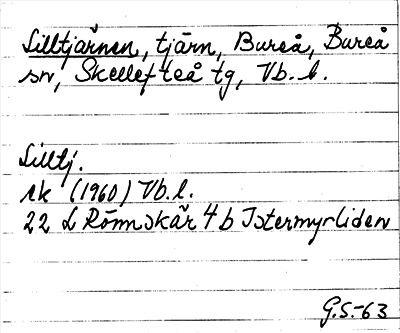 Lilltjärnen, tjärn, Bureå, Bureå
sn, Skellefteå tg, Vb. l.
Lilltj.
ek (1960) Vb. l.
22 L Rönnskär 4 b Istermyrliden
G.S-63